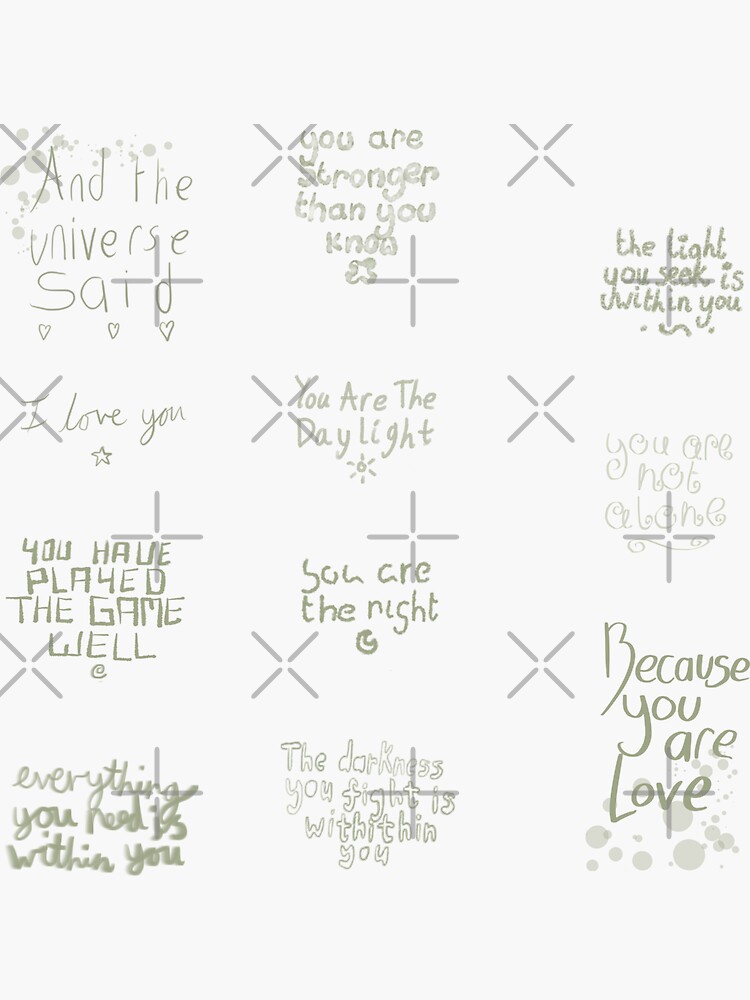 And the
universe
said
I love you
YOU HAVE
PLAYED
THE GAME
WELL
everything
you need is
within you
you are
stronger
than you
know
You Are The
Daylight
you are
the night
The darkness
you fight is
withithin
you
the light
you seek is
within you
you are
not
alone
Because
you are
Love